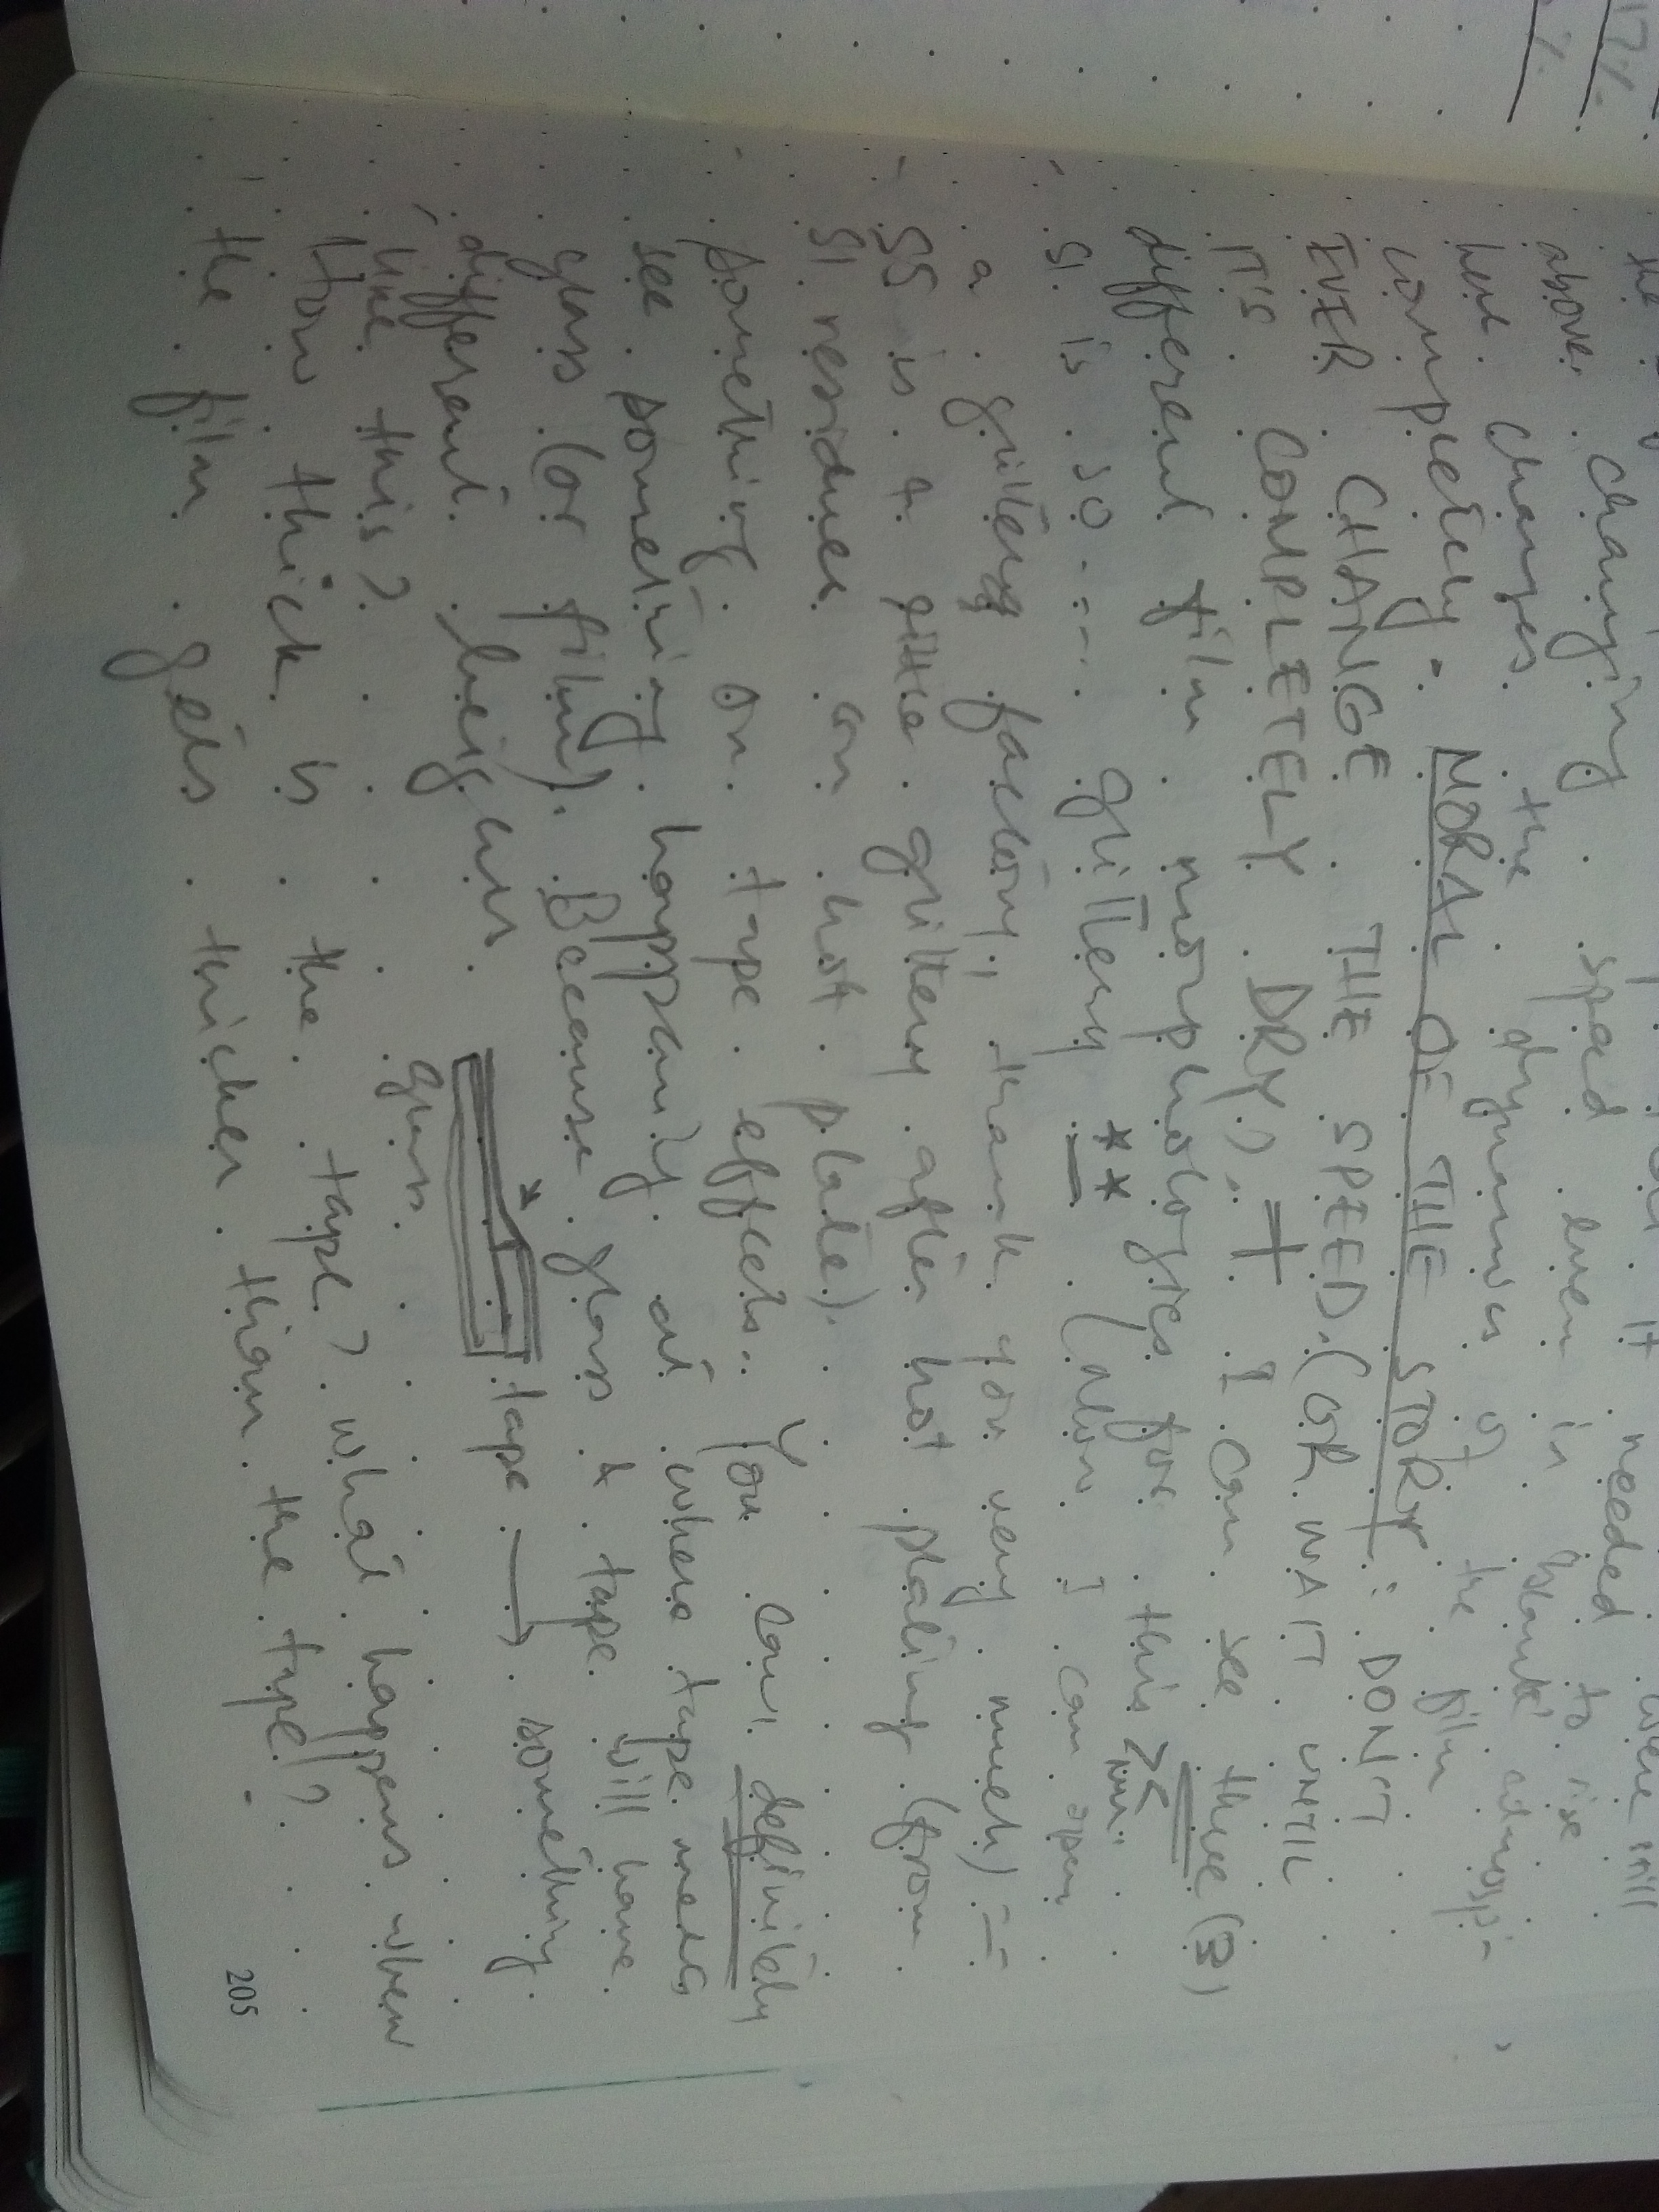 17%
%
it needed were still
above. Changing speed even in
here changes the dynamics of the film
completely. MORAL OF THE STORY: DONT
EVER CHANGE THE SPEED. (OR WAIT UNTIL
IT'S COMPLETELY DRY). I can see three (3)
different film morphologies for this
S1 is so... glittery ** (Now I can open
a glittery factory, thank you very much) —
S5 is a glittery after hot plating (from
S1 residues on hot plate).
something on tape effects.. You can definitely
see something happening at where tape meets
glass (or film). Because glass & tape will have
different heights. tape → something
like this?
glass
How thick is the tape? what happens when
the film gets thicker than the tape?
205